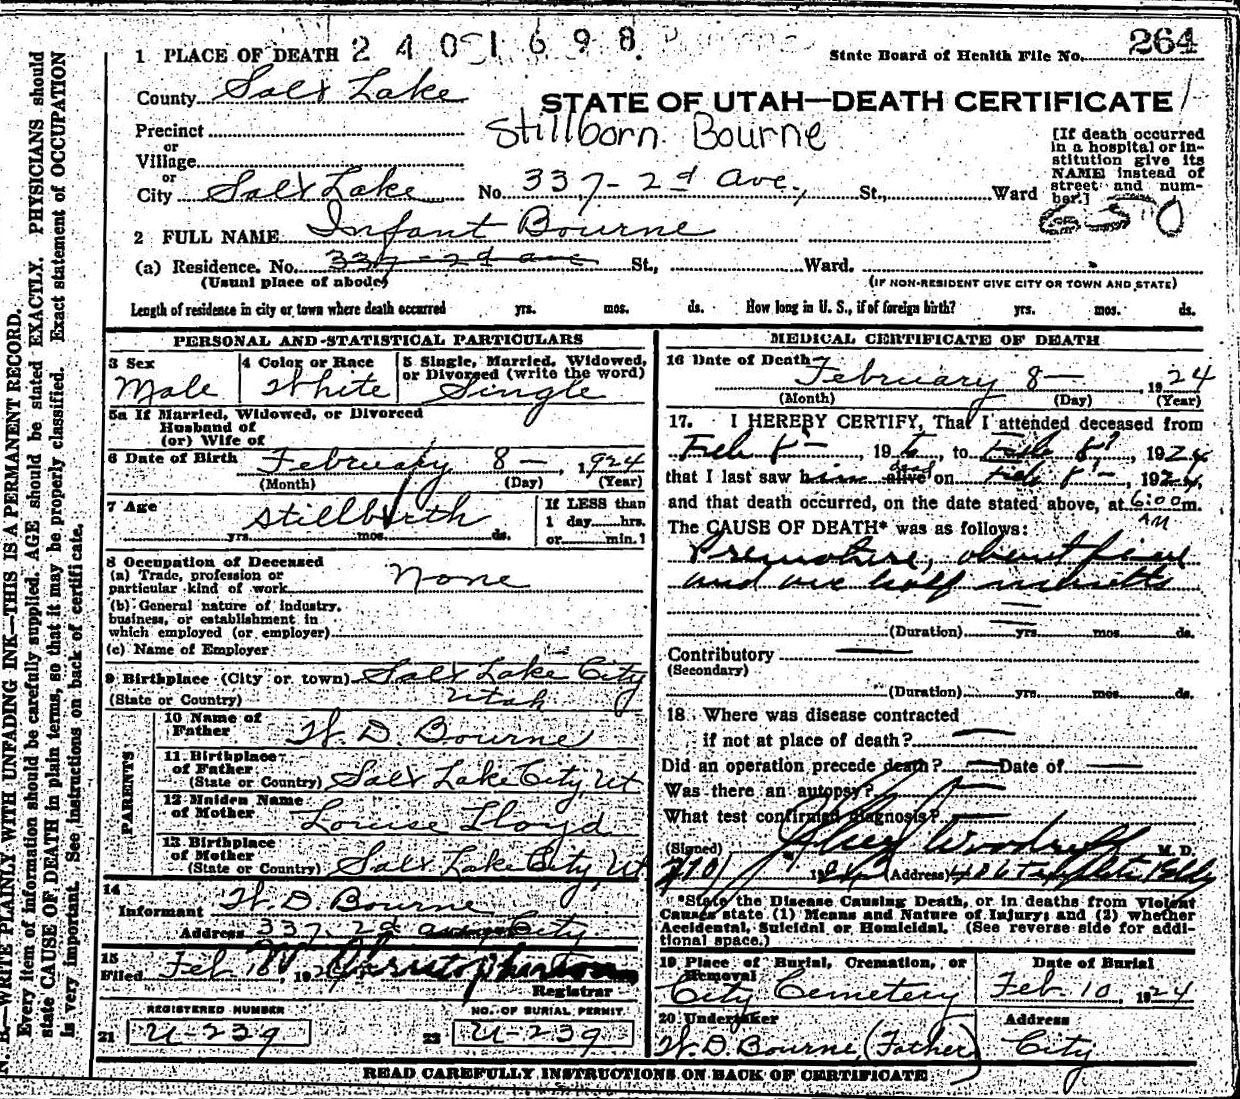 1 PLACE OF DEATH 2 4 0 5 1 6 9 8
State Board of Health File No. 264
County Salt Lake
STATE OF UTAH—DEATH CERTIFICATE
Stillborn Bourne
Precinct
or
Village
or
City Salt Lake No. 337-2d Ave., St., Ward
[If death occurred
in a hospital or in-
stitution give its
NAME instead of
street and num-
ber.]
2 FULL NAME Infant Bourne
(a) Residence. No. 337-2d ave St., Ward.
(Usual place of abode)
(IF NON-RESIDENT GIVE CITY OR TOWN AND STATE)
Length of residence in city or town where death occurred yrs. mos. ds. How long in U. S., if of foreign birth? yrs. mos. ds.
PERSONAL AND STATISTICAL PARTICULARS
3 Sex
Male
4 Color or Race
White
5 Single, Married, Widowed,
or Divorced (write the word)
Single
5a If Married, Widowed, or Divorced
Husband of
(or) Wife of
6 Date of Birth February 8 — , 1924
(Month) (Day) (Year)
7 Age
stillbirth
yrs. mos. ds.
If LESS than
1 day hrs.
or min.?
8 Occupation of Deceased
(a) Trade, profession or
particular kind of work None
(b) General nature of industry,
business, or establishment in
which employed (or employer)
(c) Name of Employer
9 Birthplace (City or town) Salt Lake City
(State or Country) Utah
PARENTS
10 Name of
Father W. D. Bourne
11 Birthplace
of Father
(State or Country) Salt Lake City, Ut
12 Maiden Name
of Mother Louise Lloyd
13 Birthplace
of Mother
(State or Country) Salt Lake City, Ut
14
Informant W. D. Bourne
Address 337-2d City
15
Filed Feb 16
Registrar
REGISTERED NUMBER
21 U-239
NO. OF BURIAL PERMIT
22 U-239
MEDICAL CERTIFICATE OF DEATH
16 Date of Death February 8 — , 1924
(Month) (Day) (Year)
17. I HEREBY CERTIFY, That I attended deceased from
Feb 8 —, 19 to, to Feb 8, 1924
that I last saw him alive dead on Feb 8 —, 1924,
and that death occurred, on the date stated above, at 6:00 m.
AM
The CAUSE OF DEATH* was as follows:
Premature, about five
and one half months
(Duration) yrs. mos. ds.
Contributory
(Secondary)
(Duration) yrs. mos. ds.
18. Where was disease contracted
if not at place of death?
Did an operation precede death? Date of
Was there an autopsy?
What test confirmed diagnosis?
(Signed) Woodruff M. D.
(Address) 406 Templeton Bldg
*State the Disease Causing Death, or in deaths from Violent
Causes state (1) Means and Nature of Injury; and (2) whether
Accidental, Suicidal or Homicidal. (See reverse side for addi-
tional space.)
19 Place of Burial, Cremation, or
Removal
City Cemetery
Date of Burial
Feb. 10, 1924
20 Undertaker
W. D. Bourne (Father)
Address
City
READ CAREFULLY INSTRUCTIONS ON BACK OF CERTIFICATE
N. B.—WRITE PLAINLY WITH UNFADING INK—THIS IS A PERMANENT RECORD.
Every item of information should be carefully supplied. AGE should be stated EXACTLY. PHYSICIANS should
state CAUSE OF DEATH in plain terms, so that it may be properly classified. Exact statement of OCCUPATION
is very important. See instructions on back of certificate.